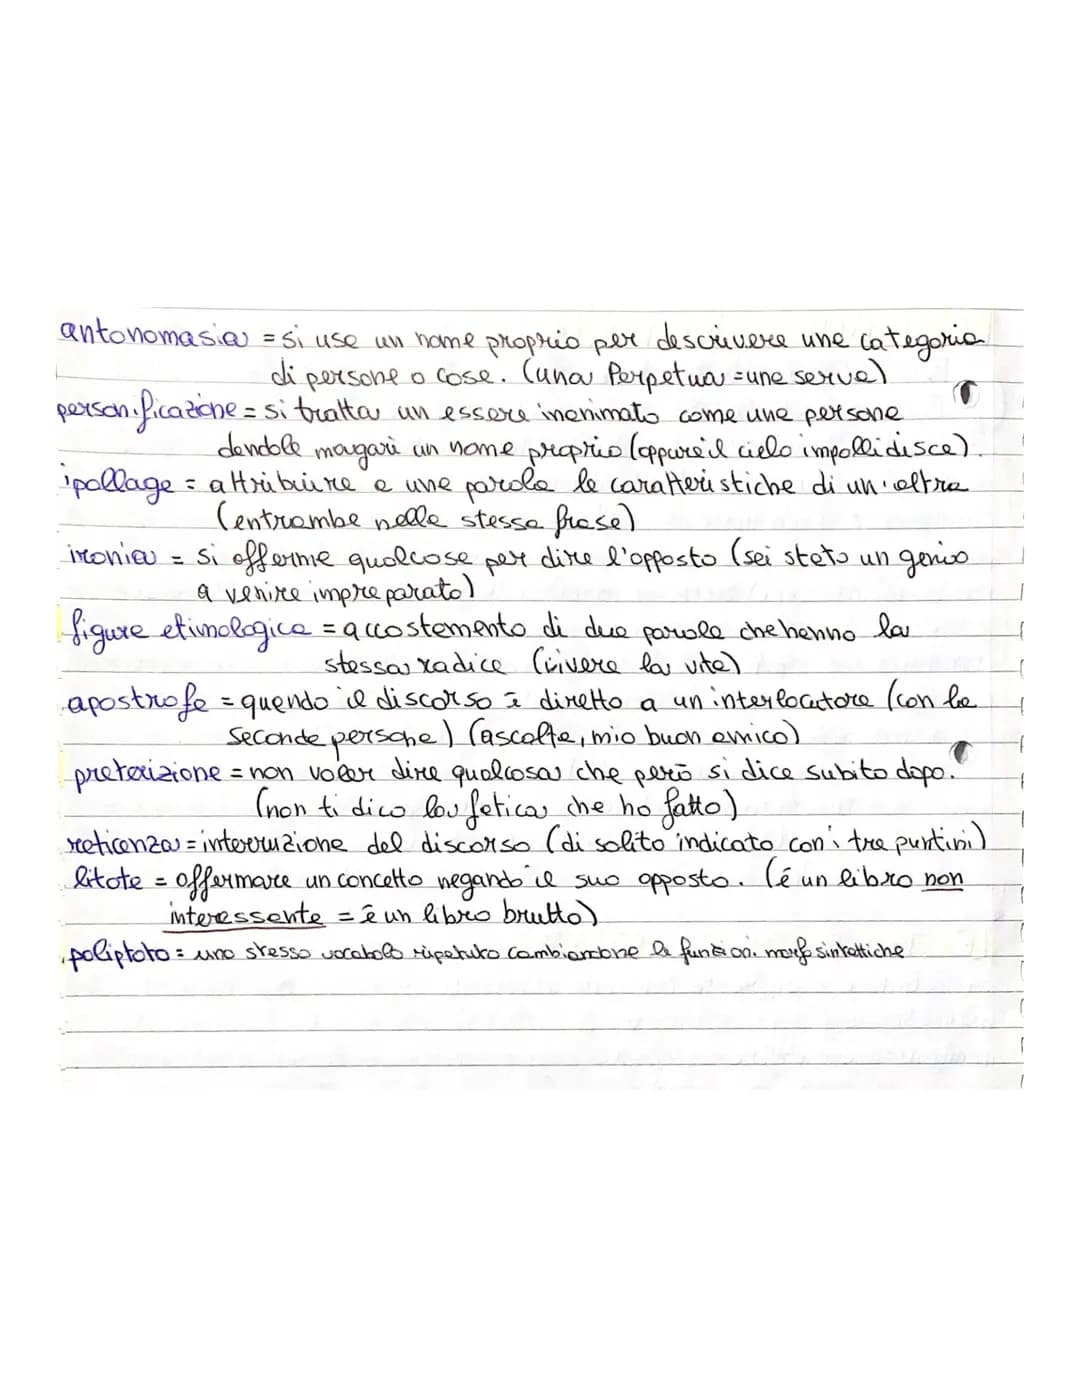 antonomasia = si usa un nome proprio per descrivere una categoria
di persone o cose. (una Perpetua = una serva)
personificazione = si tratta un essere inanimato come una persona
dandole magari un nome proprio (oppure il cielo impallidisce).
ipallage = attribuire a una parola le caratteristiche di un'altra
(entrambe nella stessa frase)
ironia = si afferma qualcosa per dire l'opposto (sei stato un genio
a venire impreparato)
figura etimologica = accostamento di due parole che hanno la
stessa radice (vivere la vita)
apostrofe = quando il discorso è diretto a un interlocutore (con la
seconda persona) (ascolta, mio buon amico)
preterizione = non voler dire qualcosa che però si dice subito dopo.
(non ti dico la fatica che ho fatto)
reticenza = interruzione del discorso (di solito indicato con i tre puntini)
litote = affermare un concetto negando il suo opposto. (é un libro non
interessante = è un libro brutto)
poliptoto = uno stesso vocabolo ripetuto cambiandone le funzioni morfosintattiche